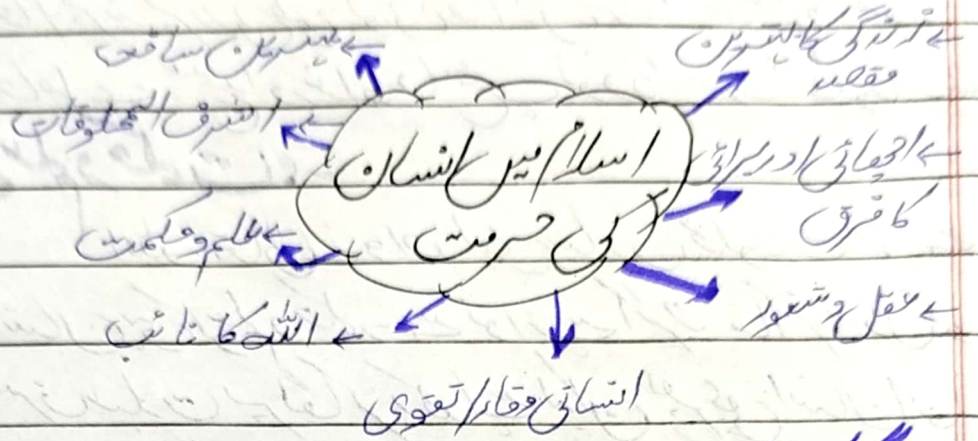 اسلام میں انسان
کی حرمت
← زندگی کا بہترین
مقصد
← اچھائی اور برائی
کا فرق
← عقل و شعور
انسانی وقار/تقوی
← اللہ کا نائب
← علم و حکمت
← اشرف المخلوقات
← بہترین ساخت